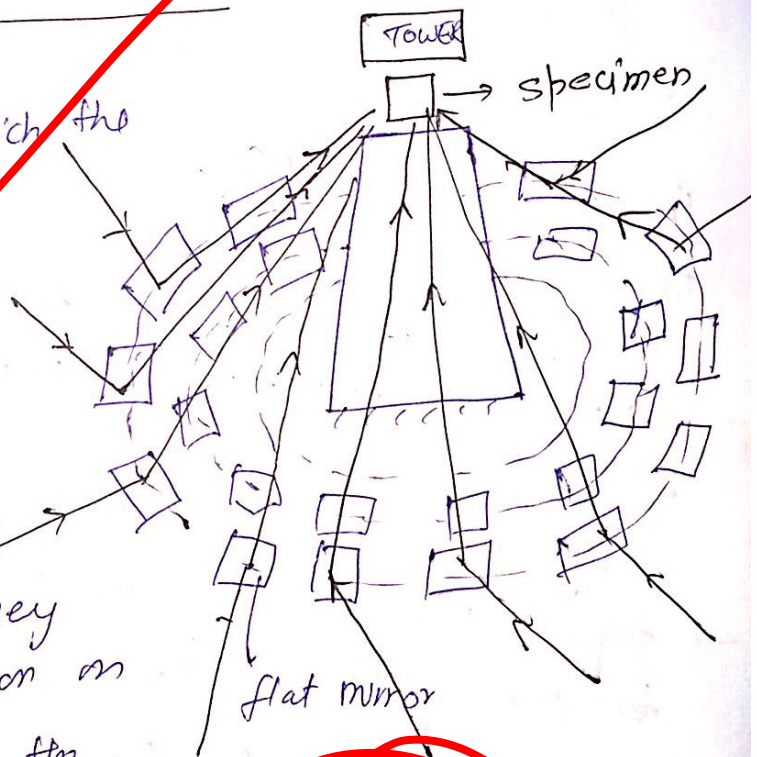 TOWER
specimen
ich the
ey
on on
flat mirror